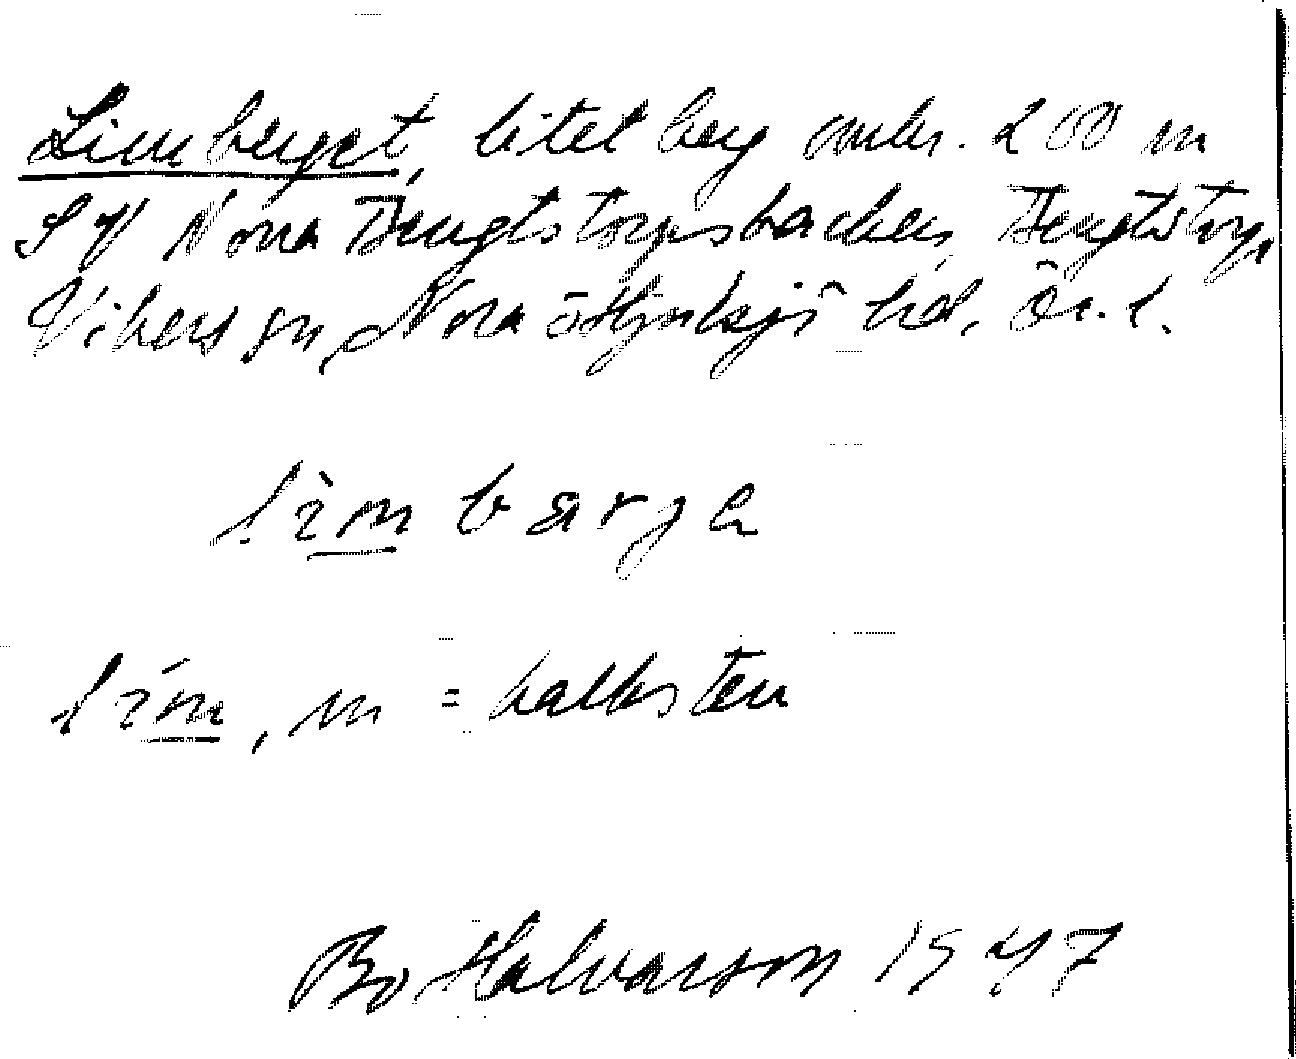 Limberget, litet berg omkr. 200 m
SV Norra Bengtstorpsbacken, Bengtstorp,
Vikers sn, Nora o Hjulsjö hd, Ör. l.
lìmbærjə
lím, m = kalksten
Bo Halvarson 1947